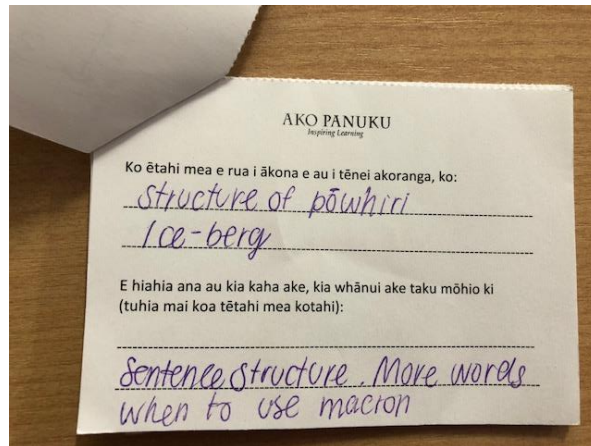 AKO PANUKU
Inspiring Learning
Ko ētahi mea e rua i ākona e au i tēnei akoranga, ko:
Structure of pōwhiri
Ice-berg
E hiahia ana au kia kaha ake, kia whānui ake taku mōhio ki
(tuhia mai koa tētahi mea kotahi):
Sentence structure. More words
when to use macron